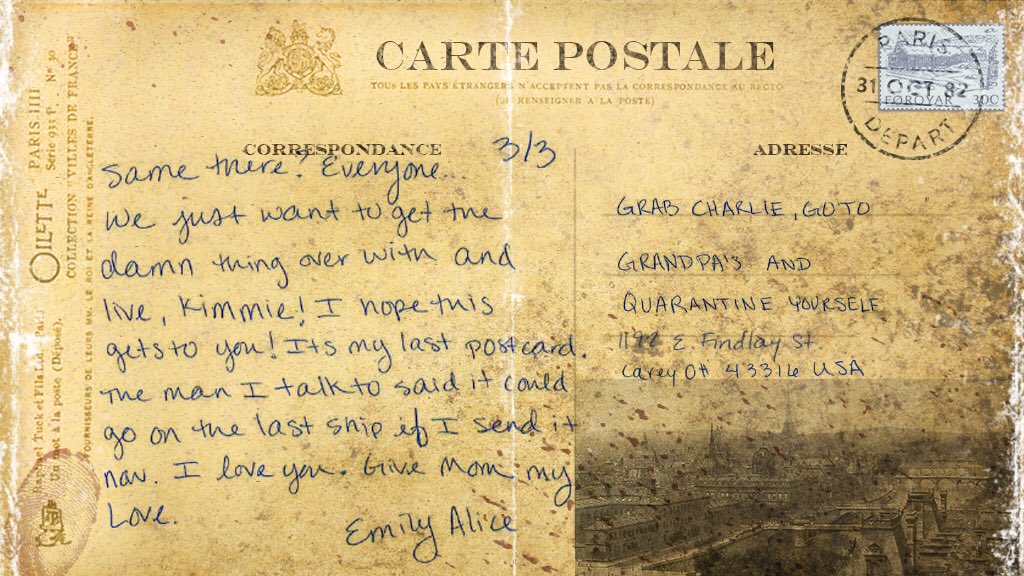 CARTE POSTALE
TOUS LES PAYS ETRANGERS N'ACCEPTENT PAS LA CORRESPONDANCE AU RECTO
(SE RENSEIGNER A LA POSTE)
PARIS
31 OCT 82
DEPART
FØROYAR 300
CORRESPONDANCE
3/3
Same there? Everyone...
we just want to get the
damn thing over with and
live, Kimmie! I hope this
gets to you! Its my last postcard.
The man I talk to said it could
go on the last ship if I send it
now. I love you. Give Mom my
Love.
Emily Alice
ADRESSE
GRAB CHARLIE, GO TO
GRANDPA'S AND
QUARANTINE YOURSELF
E Findlay St
Carey OH 43316 USA
PARIS IIII
Série 935 P. No 36
OILETTE
COLLECTION "VILLES DE FRANCE"
Raphael Tuck et Fils Ltd., Paris
à la poste (Déposé).
FOURNISSEURS DE LEURS MM. LE ROI ET LA REINE D'ANGLETERRE.